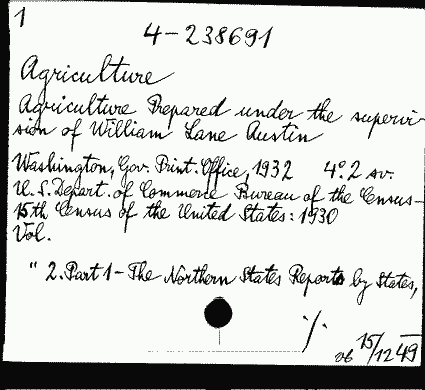 1
4-238691
Agriculture
Agriculture Prepared under the supervi-
sion of William Lane Austin
Washington, Gov. Print. Office, 1932 4° 2 sv.
U.S. Depart. of Commerce Bureau of the Census-
15th Census of the United States: 1930
Vol.
" 2. Part 1 - The Northern States Reports by States,
./.
15/12 49